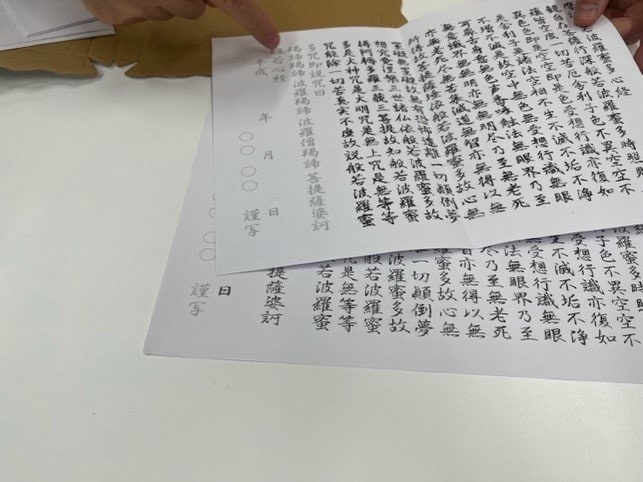 波羅蜜多心経
若波羅蜜多時照見
蘊皆空度一切苦厄舎利子色不異空空不
異色色即是空空即是色受想行識亦復如
是舎利子是諸法空相不生不滅不垢不浄
不増不減是故空中無色無受想行識無眼
耳鼻舌身意無色声香味触法無眼界乃至
無意識界無無明亦無無明尽乃至無老死
亦無老死尽無苦集滅道無智亦無得以無
所得故菩提薩埵依般若波羅蜜多故心無
罣礙無罣礙故無有恐怖遠離一切顛倒夢
想究竟涅槃三世諸仏依般若波羅蜜多故
得阿耨多羅三藐三菩提故知般若波羅蜜
多是大神咒是大明咒是無上咒是無等等
咒能除一切苦真実不虚故説般若波羅蜜
多咒即説咒曰
羯諦羯諦波羅羯諦波羅僧羯諦菩提薩婆訶
般若心経
平成 年 月 日
〇〇〇〇 謹写
多時照
不異空空不
想行識亦復如
不滅不垢不浄
受想行識無眼
法無眼界乃至
尽乃至無老死
智亦無得以無
羅蜜多故心無
一切顛倒夢
若波羅蜜多故
知般若波羅蜜
咒是無等等
若波羅蜜
提薩婆訶
日
〇〇 謹写